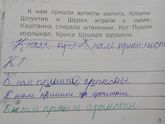 К нам пришли артисты шапито, клоуны
Шпунтик и Шурик играли с нами.
Каштанка стирала штанишки. Кот Пушок
мурлыкал. Крыса Шушера шуршала.
К нам К нам пришли
К
К нам пришли артисты
К нам пришли артисты
К нам пришли артисты